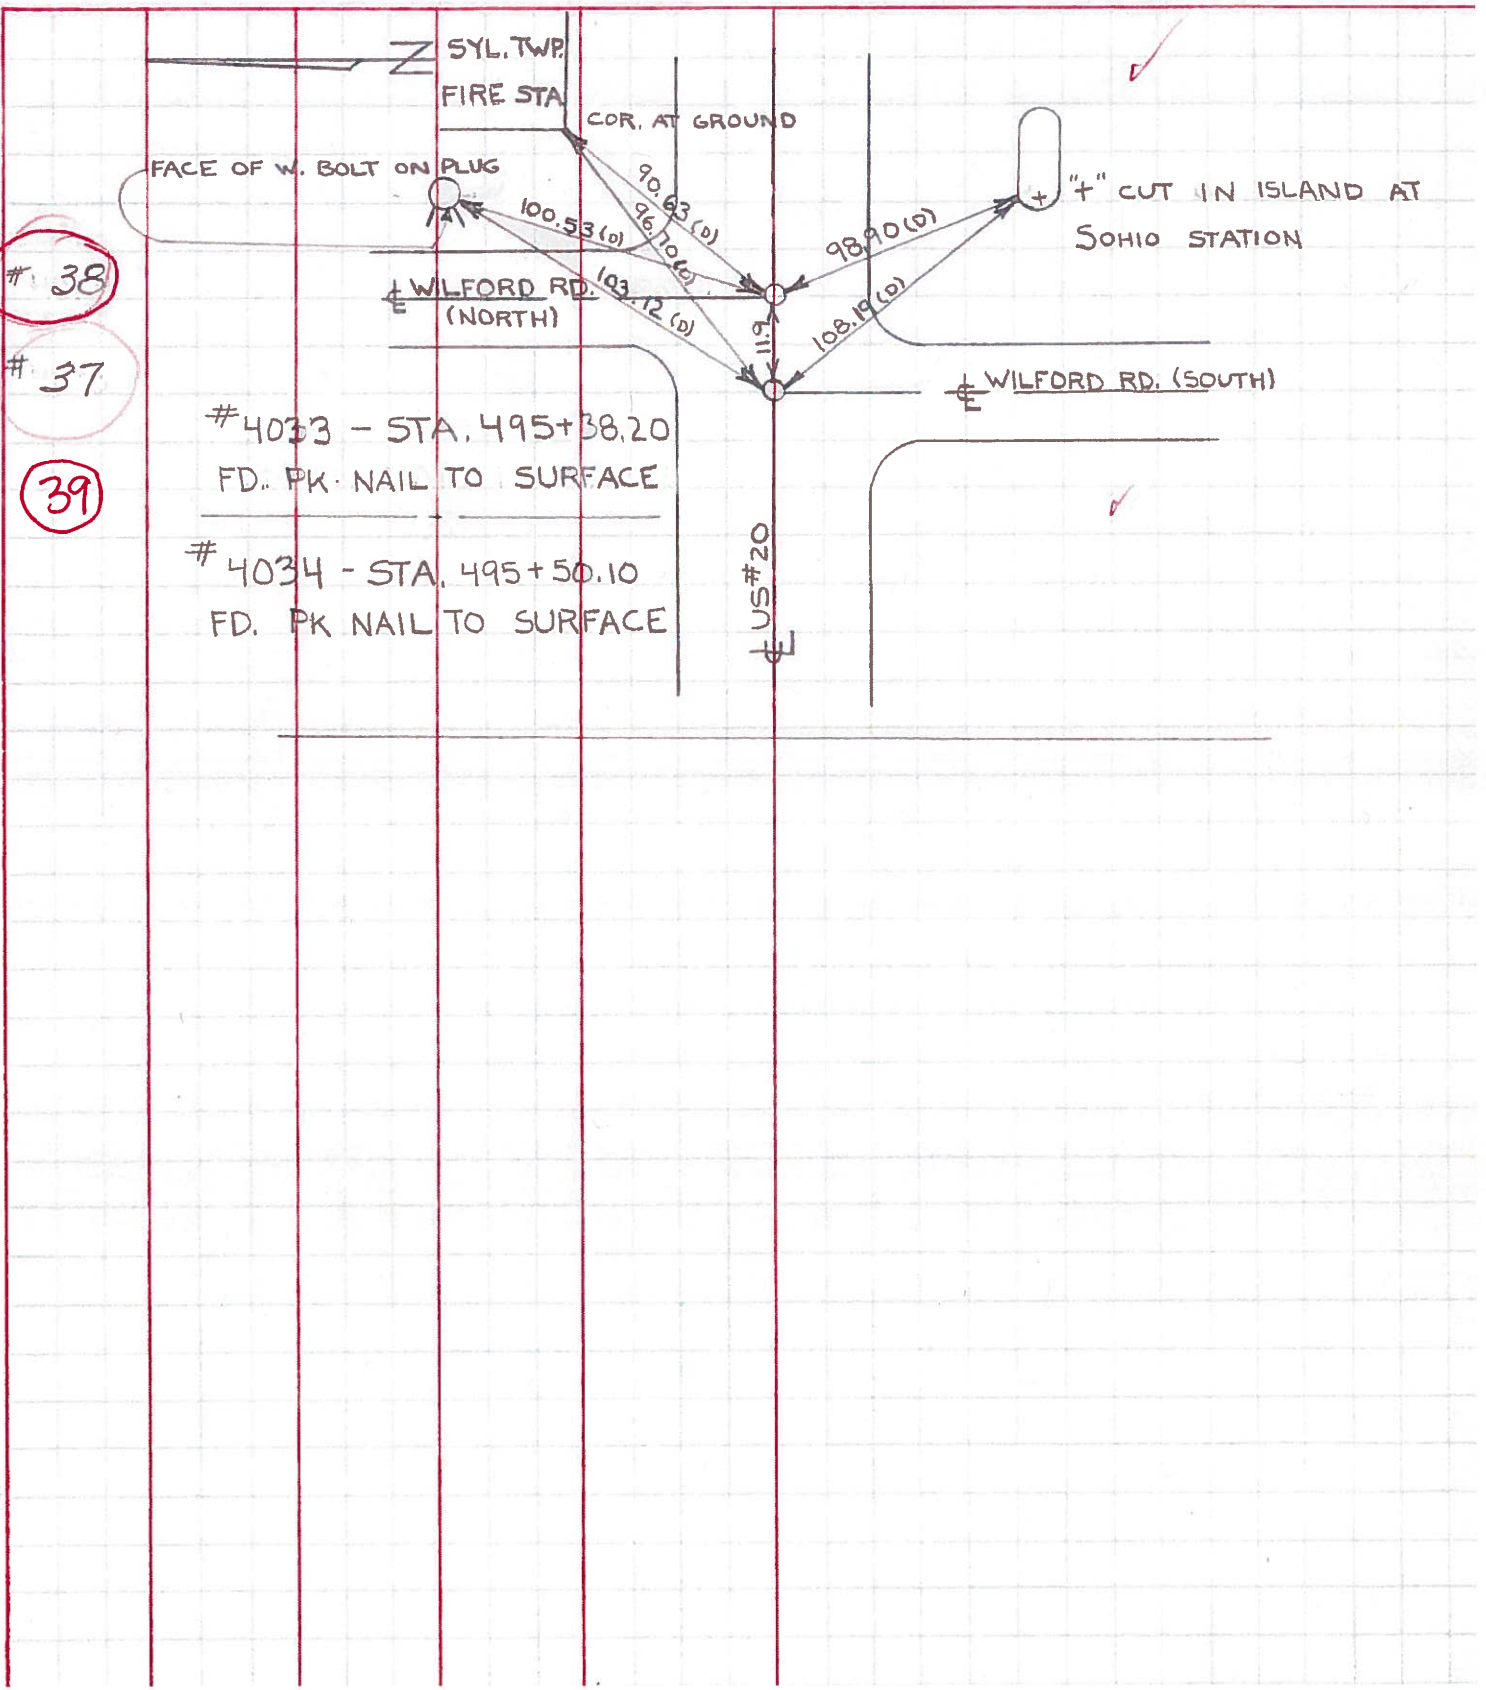 SYL. TWP.
FIRE STA
COR. AT GROUND
FACE OF W. BOLT ON PLUG
"+" CUT IN ISLAND AT
SOHIO STATION
90.63 (D)
96.70 (D)
100.53 (D)
103.12 (D)
98.90 (D)
108.19 (D)
11.9
# 38
℄ WILFORD RD.
(NORTH)
# 37
℄ WILFORD RD. (SOUTH)
#4033 - STA. 495+38.20
FD. PK. NAIL TO SURFACE
39
#4034 - STA. 495+50.10
FD. PK NAIL TO SURFACE
℄ US#20